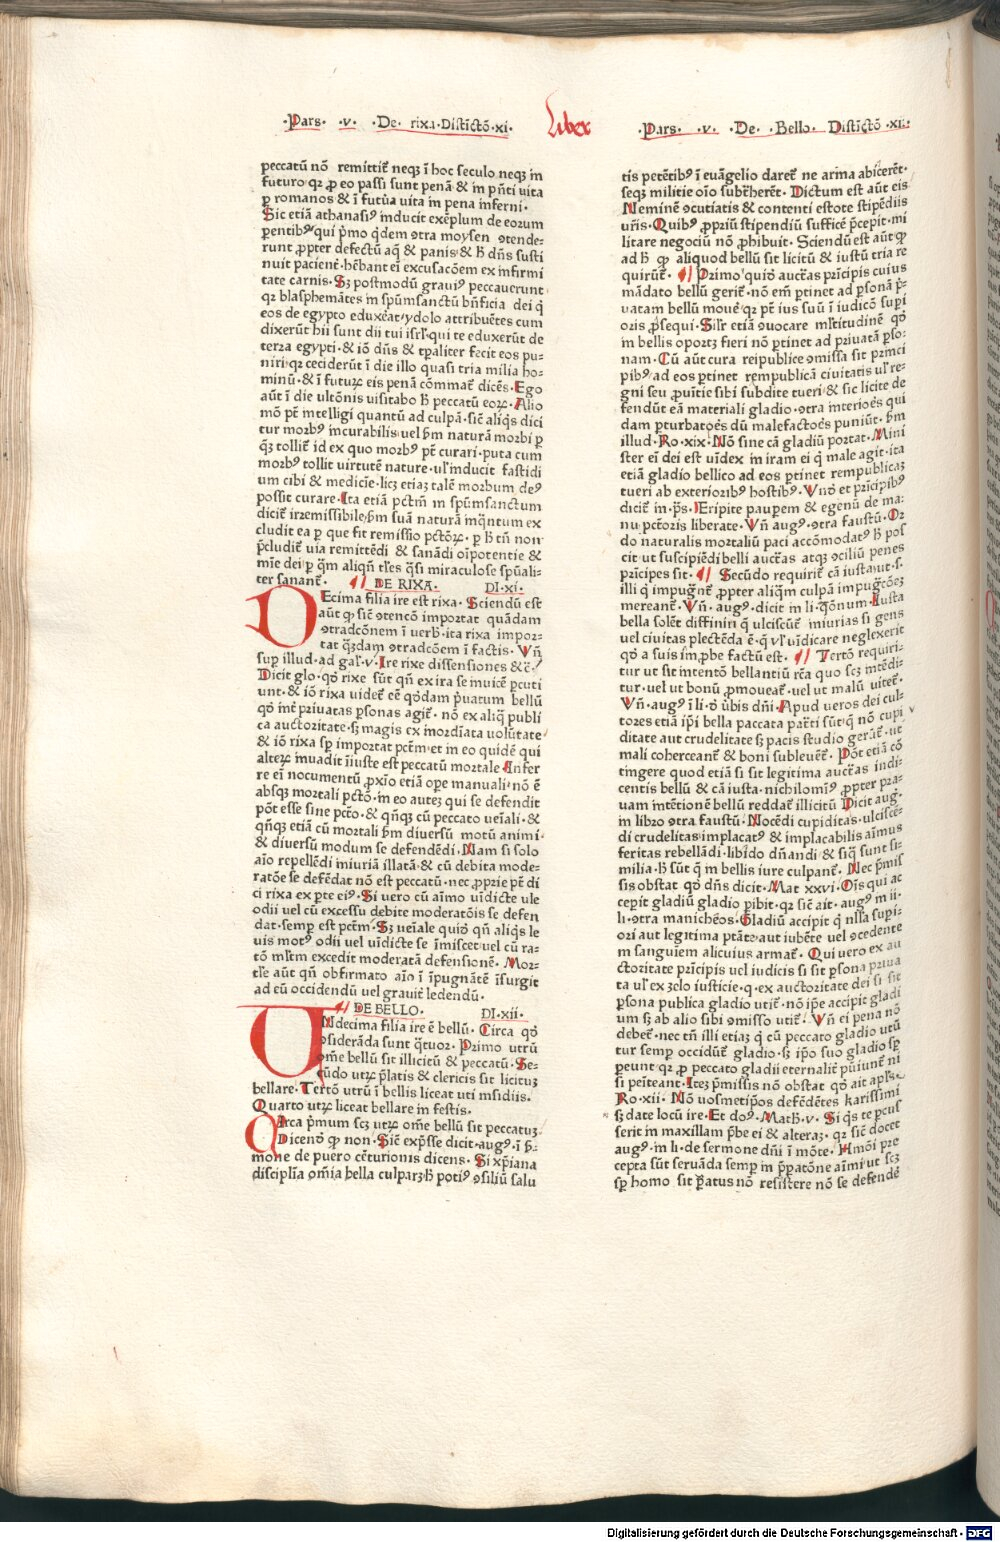 ·Pars· ·v· ·De· rixa·Distĩctõ·xi·
Liber
·Pars· ·v· ·De· ·Bello· Distĩctõ ·xii·
peccatũ nõ remittit̃ neqꝫ ĩ hoc seculo neqꝫ in
futuro qꝛ ꝓ eo passi sunt penã & in p̃nti uita
ꝑ romanos & ĩ futũa uita in pena inferni·
Sic etiã athanasiꝰ inducit exẽplum de eorum
ꝑentibꝰ qui p̃mo q̃dem ꝯtra moysen ꝯtende-
runt ꝓpter defectũ aq̃ & panis & h̃ dñs susti
nuit pacient̃ hẽbant eĩ excusacõem ex infirmi
tate carnis·Sꝫ postmodũ grauiꝰ peccauerunt
qꝛ blasphemãtes in sp̃umsanctũ bñficia dei q̃
eos de egypto eduxẽat ydolo attribuẽtes cum
dixerũt hii sunt dii tui isrl̃·qui te eduxerũt de
terza egypti·& iõ dñs & tp̃aliter fecit eos pu-
niri·qꝛ ceciderũt ĩ die illo quasi tria milia ho-
minũ·& ĩ futuꝝ eis penã cõmmat̃ dicẽs·Ego
aũt ĩ die ultõnis uisitabo h̃ peccatũ eoꝝ·Alio
mõ p̃t intelligi quantũ ad culpã·sic̃ aliq̃s dici
tur morbꝰ incurabilis uel s̃m naturã morbi ꝑ
q̃ꝫ tollit̃ id ex quo morbꝰ p̃t curari·puta cum
morbꝰ tollit uirtutẽ nature·ul̃ inducit fastidi
um cibi & medicĩe·licꝫ etiaꝫ talẽ morbum deꝰ
possit curare·Ita etiã pctm̃ in sp̃umsanctum
dicit̃ irzemissibile s̃m suã naturã inq̃ntum ex
cludit ea ꝑ que fit remissio pctõꝝ·ꝑ h̃ tñ non
p̃cludit̃ uia remittẽdi & sanãdi oĩpotentie &
mĩe dei ꝑ q̃m aliqñ tl̃es q̃si miraculose sp̃uali-
ter sanant̃· DE RIXA· DI·xi·
DEcima filia ire est rixa·Sciendũ est
aũt qꝙ sic̃ ꝯtencõ importat quãdam
ꝯtradcõnem ĩ uerbꝭ·ita rixa impor-
tat q̃ꝫdam ꝯtradcõem ĩ factis·Vñ
suꝑ illud·ad gal̃·v·Ire rixe dissensiones &c̃·
Dicit glo·qõ rixe sũt qñ ex ira se inuicẽ ꝑcuti
unt·& iõ rixa uidet̃ cẽ qõdam p̃uatum bellũ
qõ int̃ priuatas ꝑsonas agit̃·nõ ex aliq̃ publi
ca auctoritate·sꝫ magis ex inordĩata uolũtate
& iõ rixa sꝑ importat pctm̃·et in eo quidẽ qui
alteꝝ inuadit iĩuste est peccatũ mortale Infer
re eĩ nocumentũ ꝓxĩo etiã oꝑe manuali·nõ ẽ
absqꝫ mortali pctõ·in eo auteꝫ qui se defendit
põt esse sine pctõ·& qñqꝫ cũ peccato ueĩali·&
qñqꝫ etiã cũ mortali s̃m diuersũ motũ animi
& diuersũ modum se defendẽdi·Nam si solo
aĩo repellẽdi iniuriã illatã·& cũ debita mode-
ratõe se defẽdat nõ est peccatũ·nec ꝓprie p̃t di
ci rixa ex ꝑte eiꝰ·Si vero cũ aĩmo uĩdicte ule
odii uel cũ excessu debite moderatõis se defen
dat·semꝑ est pctm̃·Sꝫ ueĩale quĩo qñ aliq̃s le
uis motꝰ odii uel uĩdicte se ĩmiscet uel cũ ra-
tõ mltm̃ excedit moderatã defensionẽ·Mor-
tl̃e aũt qñ obfirmato aĩo ĩ ĩpugnãtẽ ĩsurgit
ad eũ occidendũ uel grauit̃ ledendũ·
DE BELLO· DI·xii·
UNdecima filia ire ẽ bellũ·Circa qõ
ꝯsiderãda sunt q̃tuor·Primo utrũ
om̃e bellũ sit illicitũ & peccatũ·Se-
cũdo utꝝ p̃latis & clericis sit licituꝫ
bellare·Tertõ utrũ ĩ bellis liceat uti insidiis·
Quarto utꝝ liceat bellare in festis·
CIrca p̃mum scꝫ utꝝ om̃e bellũ sit peccatuꝫ
Dicenõ qꝙ non·Sic̃ exp̃sse dicit·augꝰ·ĩ s̃-
mone de puero cẽturionis dicens·Si xp̃iana
disciplĩa om̃ia bella culparꝫ·h̃ potiꝰ ꝯsiliũ salu
tis petẽtibꝰ ĩ euãgelio daret̃ ne arma abĩcerẽt·
seqꝫ militie oĩo subtr̃herẽt·Dictum est aũt eis
Neminẽ ꝯcutiatis & contenti estote stipẽdiis
ur̃is·Quibꝰ ꝓpriũ stipendiũ sufficẽ p̃cepit·mi
litare negociũ nõ ꝓhibuit·Sciendũ est aũt qꝙ
ad h̃ qꝙ aliquod bellũ sit licitũ & iustũ tria re
quirũt̃· Primo quiõ auctãs pr̃icipis cuius
mãdato bellũ gerit̃·nõ em̃ ꝑtinet ad ꝑsonã p̃-
uatam bellũ mouẽ qꝛ p̃t ius suũ ĩ iudicõ suꝑi
ozis ꝓsequi·Sil̃r etiã ꝯuocare ml̃titudinẽ qõ
in bellis oportꝫ fieri nõ ꝑtinet ad priuatã ꝑso-
nam·Cũ aũt cura reipublice ꝯmissa sit prinici
pibꝰ ad eos ꝑtinet rempublicã ciuitatis ul̃ re-
gni seu ꝓuĩtie sibi subdite tueri & sic licite de
fendũt eã materiali gladio·ꝯtra interioẽs qui
dam ꝑturbatoẽs dũ malefactoẽs puniũt·s̃m
illud·Ro·xix·Nõ sine cã gladiũ portat·Mini
ster eĩ dei est uĩdex in iram ei q̃ male agit·ita
etiã gladio bellico ad eos ꝑtinet rempublicaꝫ
tueri ab exterioribꝰ hostibꝰ·Vnõ et pr̃icipibꝰ
dicit̃ in·p̃s·Eripite pauꝑem & egenũ de ma-
nu pctõris liberate·Vñ augꝰ·ꝯtra faustũ·Or
do naturalis mortaliũ paci accõmodatꝰ h̃ pos
cit ut suscipiẽdi belli auctãs atqꝫ ꝯciliũ penes
pr̃icipes sit· Secũdo requirit̃ cã iusta·ut·s·
illi q̃ impug̃nt̃ ꝓpter aliq̃m culpã impug̃cõeꝫ
mereant̃·Vñ·augꝰ·dicit in li·q̃onum·Iusta
bella solẽt diffiniri q̃ ulciscũt̃ iniurias si gens
uel ciuitas plectẽda ẽ·q̃ vl̃ uĩdicare neglexerit
qõ a suis im̃ꝓbe factũ est· Tertõ requiri-
tur ut sit intentõ bellantiũ r̃ca quo scꝫ intẽdi-
tur·uel ut bonũ ꝓmoueat̃·uel ut malũ uitet̃·
Vñ·augꝰ ĩ li·õ ũbis dñi·Apud ueros dei cul-
tores etiã ip̃i bella paccata parti sũt q̃ nõ cupi
ditate aut crudelitate sꝫ pacis studio gerũt̃·ut
mali coherceant̃ & boni subleuẽt̃·Põt etiã cõ
tingere quod etiã si sit legitima auctãs indi-
centis bellũ & cã iusta·nichilomĩꝰ ꝓpter pra-
uam intẽtionẽ bellũ reddat̃ illicitũ Dicit aug·
in libro ꝯtra faustũ·Nocẽdi cupiditas·ulciscẽ-
di crudelitas·implacatꝰ & implacabilis aĩmus
feritas rebellãdi·libĩdo dñandi & siq̃ sunt si-
milia·h̃ sũt q̃ in bellis iure culpant̃·Nec p̃mis
sis obstat qõ dñs dicit·Mat xxvi·Oĩs qui ac
ceꝑit gladiũ gladio ꝑibit·qꝛ sic̃ ait·augꝰ in ii·
li·ꝯtra manichẽos·Gladiũ accipit q̃ nlla suꝑi-
ori aut legitima ptãte aut iubẽte uel ꝯcedente
in sanguiem alicuius armat̃· Qui uero ex au
ctoritate pr̃icipis uel iudicis si sit ꝑsona priua
ta ul̃ ex zelo iusticie·q·ex auctoritate dei si sit
ꝑsona publica gladio utit̃·nõ ip̃e accipit gladi
um sꝫ ab alio sibi ꝯmisso utit̃·Vñ ei pena nõ
debet̃·nec tñ illi etiaꝫ q̃ cũ peccato gladio utũ
tur semꝑ occidũt̃ gladio·sꝫ ip̃o suo gladio sꝑ
ꝑeunt qꝛ ꝓ peccato gladii eternalit̃ pũiunt̃ ni
si pẽiteant·Iteꝫ p̃missis nõ obstat qõ ait apl̃s
Ro·xii· Nõ uosmetip̃os defẽdẽtes karissimi
sꝫ date locũ ire·Et doꝰ·Math·v· Si q̃s te pcus
serit in maxillam p̃be ei & alteraꝫ·qꝛ sic̃ docet
augꝰ·in li·de sermone dñi ĩ mõte·Hmõi pre
cepta sũt seruãda semꝑ in p̃ꝑatõne aĩmi·ut scꝫ
sꝑ homo sit ꝑatus nõ resistere nõ se defendẽ
Digitalisierung gefördert durch die Deutsche Forschungsgemeinschaft · DFG